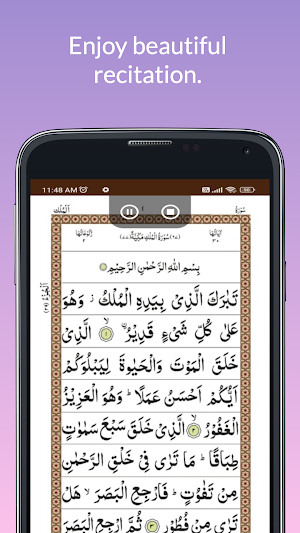 Enjoy beautiful
recitation.
11:48 AM
اَلْمُلْك
سُوْرَةُ
بِسْمِ اللّٰهِ الرَّحْمٰنِ الرَّحِيْمِ
تَبٰرَكَ الَّذِىْ بِيَدِهِ الْمُلْكُ ز وَهُوَ
عَلٰى كُلِّ شَىْءٍ قَدِيْرُ ۙ ﴿۱﴾ الَّذِىْ
خَلَقَ الْمَوْتَ وَالْحَيٰوةَ لِيَبْلُوَكُمْ
اَيُّكُمْ اَحْسَنُ عَمَلًا ؕ وَهُوَ الْعَزِيْزُ
الْغَفُوْرُ ۙ ﴿۲﴾ الَّذِىْ خَلَقَ سَبْعَ سَمٰوٰتٍ
طِبَاقًا ؕ مَا تَرٰى فِىْ خَلْقِ الرَّحْمٰنِ
مِنْ تَفٰوُتٍ ؕ فَارْجِعِ الْبَصَرَ ۙ هَلْ
تَرٰى مِنْ فُطُوْرٍ ﴿۳﴾ ثُمَّ ارْجِعِ الْبَصَرَ